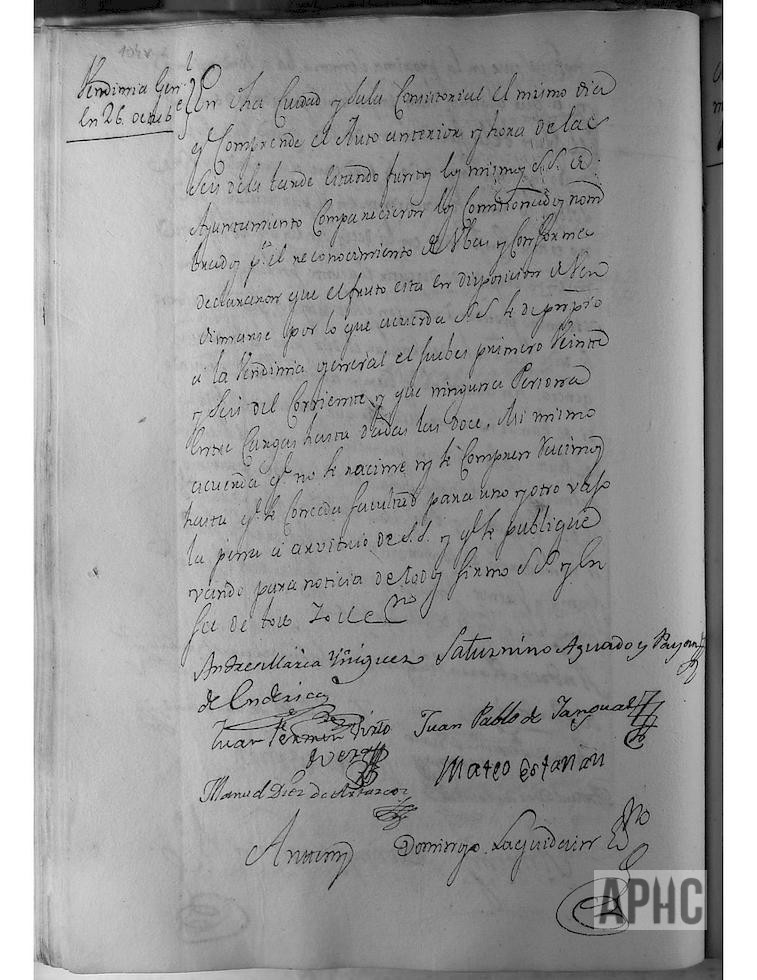 Vendimia Genl
en 26. octube
En dha Ciudad y Sala Consistorial el mismo dia
q Comprende el Auto anterior y hora de las
seis dela tarde estando juntos los mismos S.S. de
Ayuntamiento Comparecieron los Comisionados nom
brados pa el reconocimiento de Ubas y Conformes
declararon que el fruto esta en disposicion de Ven
dimarse por lo que acuerda S.S. se de prinpio
a la Vendimia general el Juebes primero Veinte
y Seis del Corriente y que ninguna Persona
entre Cargas hasta dadas las doce, Asi mismo
acuerda qe no se racime ny se Compren racimos
hasta qe se Conceda facultad para uno y otro vajo
la pena a arvitrio de S.S. y qe se publique
vando para noticia de todos firmo S.S. y En
fee de todo Yo el Esno
Andres Maria Yñiguez Saturnino Aguado y
de Enderica
Juan Fermin Pinto Juan Pablo de
Mateo
Manuel Diez de
Antemy Domingo Esno
APHC